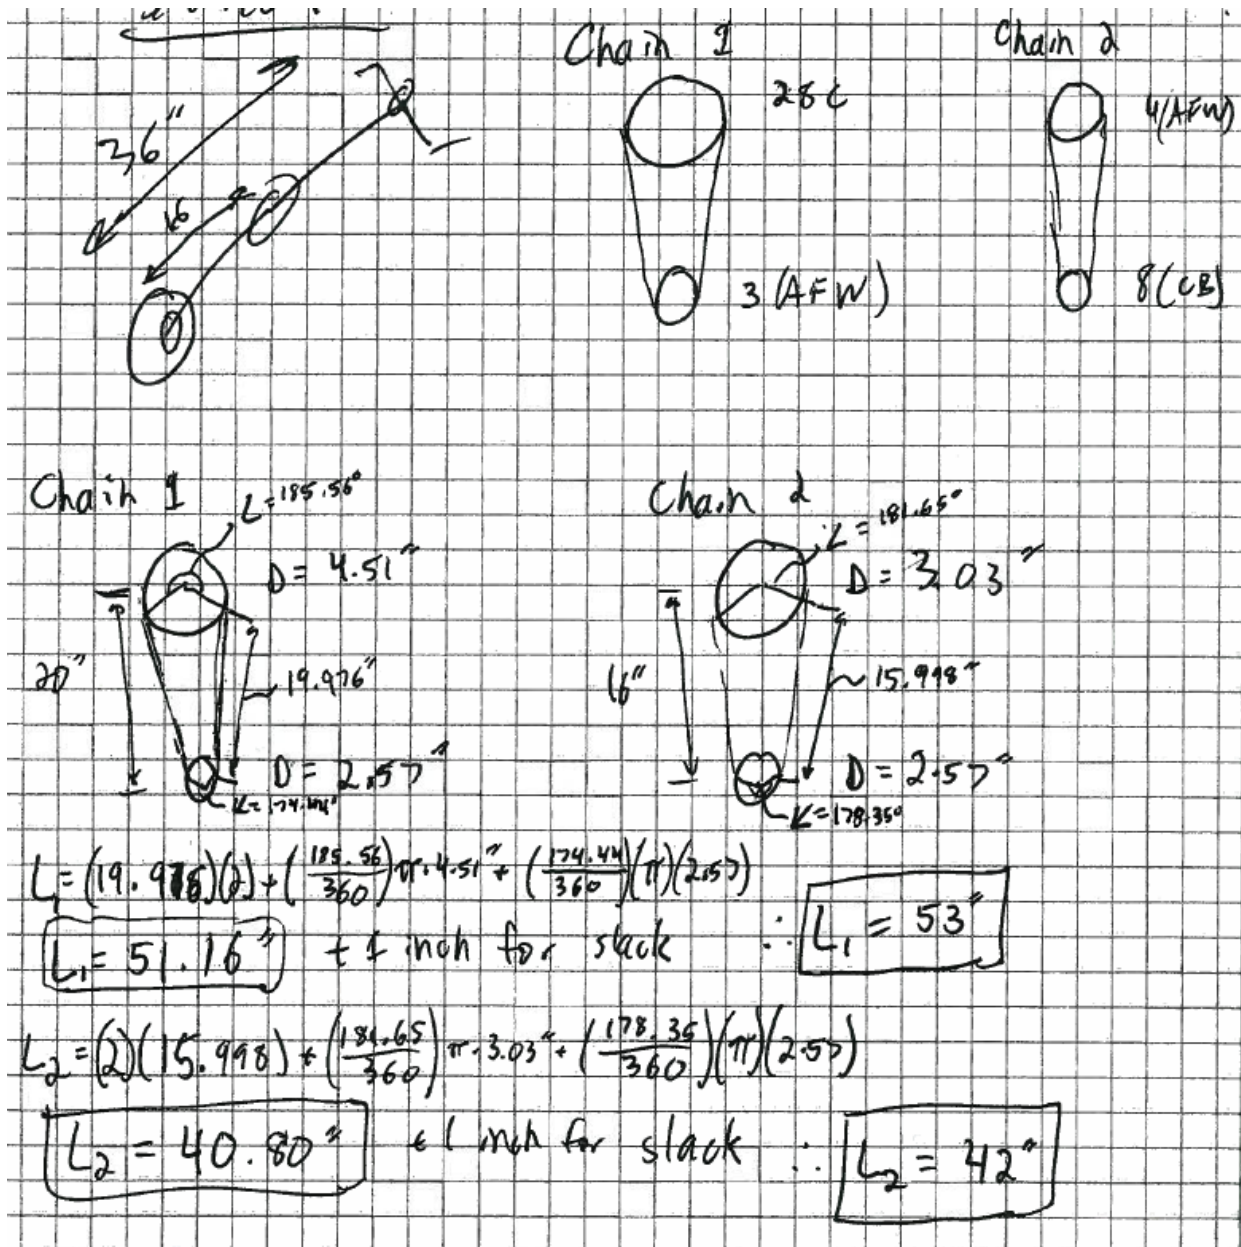 Chain 1
Chain 2
28C
4(AFW)
2,6"
16
3 (AFW)
8(CB)
Chain 1
∠=185.56°
D = 4.51"
20"
19.976"
D = 2.57"
∠=174.44°
Chain 2
∠=181.65°
D = 3.03"
16"
15.998"
D = 2.57"
∠=178.35°
L₁ = (19.976)(2) + (185.56/360) π·4.51" + (174.44/360)(π)(2.57)
L₁ = 51.16" + 1 inch for slack ∴ L₁ = 53"
L₂ = (2)(15.998) + (181.65/360) π·3.03" + (178.35/360)(π)(2.57)
L₂ = 40.80" + 1 inch for slack ∴ L₂ = 42"